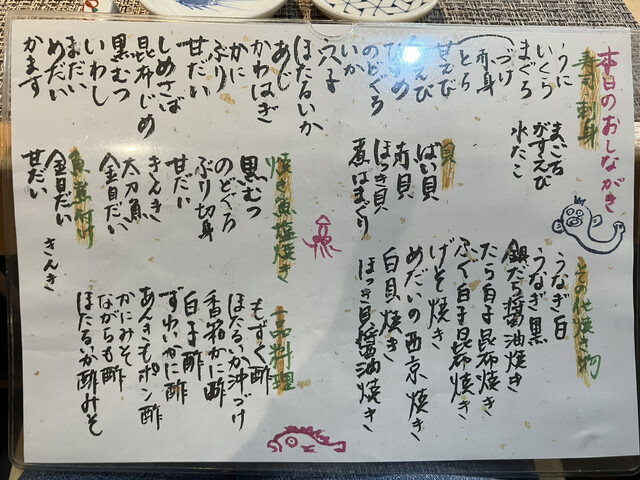 本日のおしながき
寿司 刺身
うに
いくら
まぐろ
づけ
赤身
とろ
甘えび
白えび
ひらめ
のどぐろ
いか
穴子
ほたるいか
あじ
かわはぎ
かに
ぶり
甘だい
しめさば
昆布じめ
黒むつ
いわし
まだい
めだい
かます
まごち
がすえび
水たこ
貝
ばい貝
赤貝
ほっき貝
煮はまぐり
焼き魚塩焼き
黒むつ
のどぐろ
ぶり切身
甘だい
きんき
太刀魚
金目だい
魚煮付け
金目だい
甘だい
きんき
その他焼き物
うなぎ白
うなぎ黒
銀だら醤油焼き
たら白子昆布焼き
ふぐ白子昆布焼き
げそ焼き
めだいの西京焼き
白貝焼き
ほっき貝醤油焼き
一品料理
もずく酢
ほたるいか沖づけ
香箱かに酢
白子酢
ずわいかに酢
あんきもポン酢
かにみそ
ながらも酢
ほたるいか酢みそ